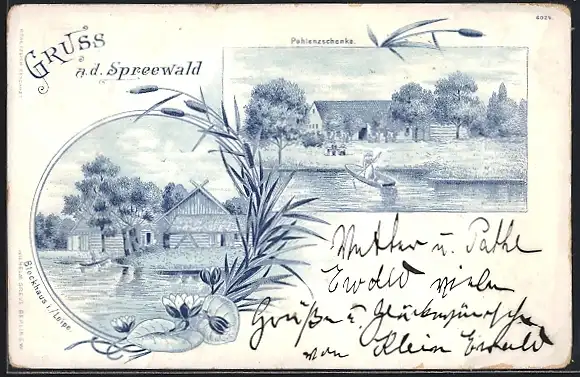 Gruss
a. d. Spreewald
Pohlenzschenke.
Blockhaus i./Leipe.
Mutter u. Pathe
Ewald viele
Grüße u. Glückwünsche
von Klein Ewald